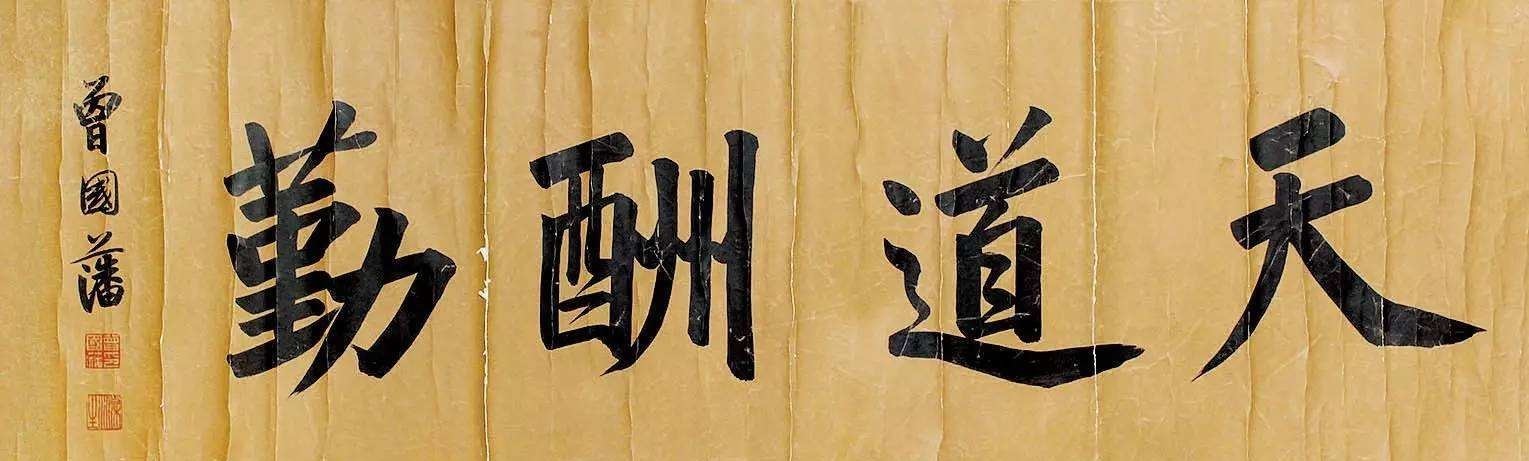 天道酬勤
曾國藩